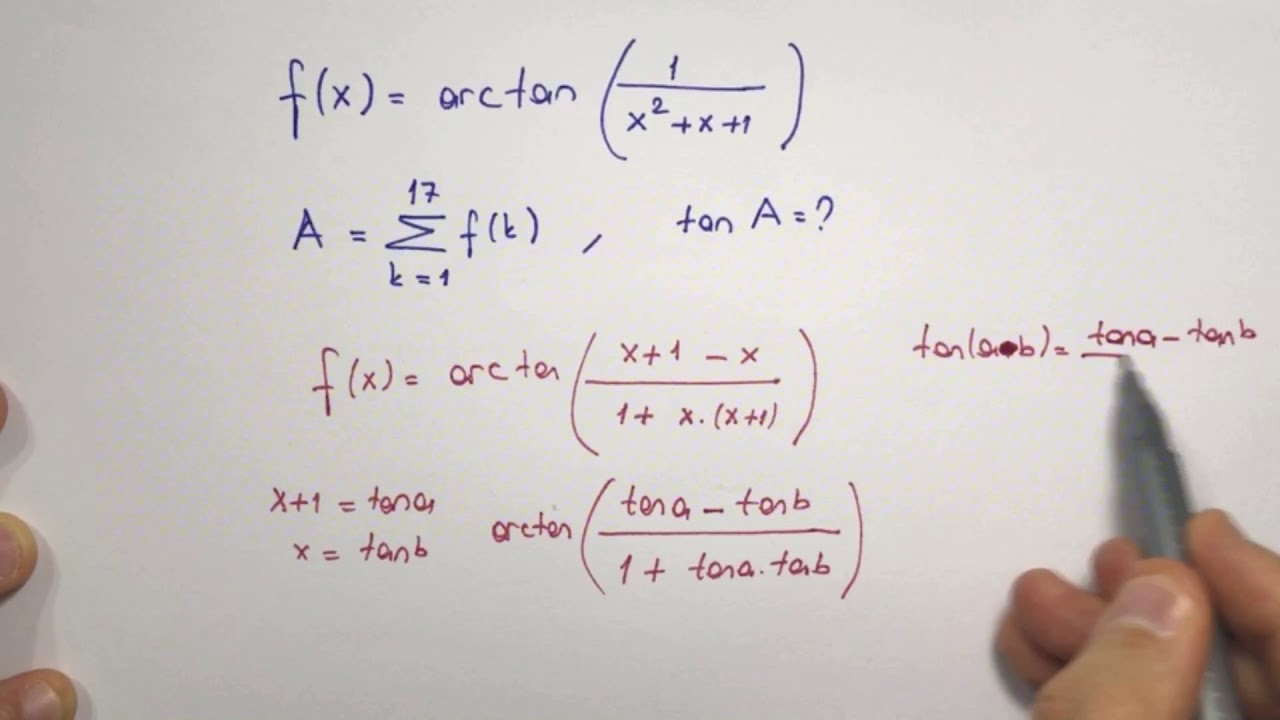 f(x) = arctan (1/(x²+x+1))
A = 17 Σ k=1 f(k) , tan A = ?
f(x) = arctan ((x+1 - x)/(1 + x.(x+1)))
tan(a-b) = tana - tanb
x+1 = tana
x = tanb
arctan ((tana - tanb)/(1 + tana.tab))